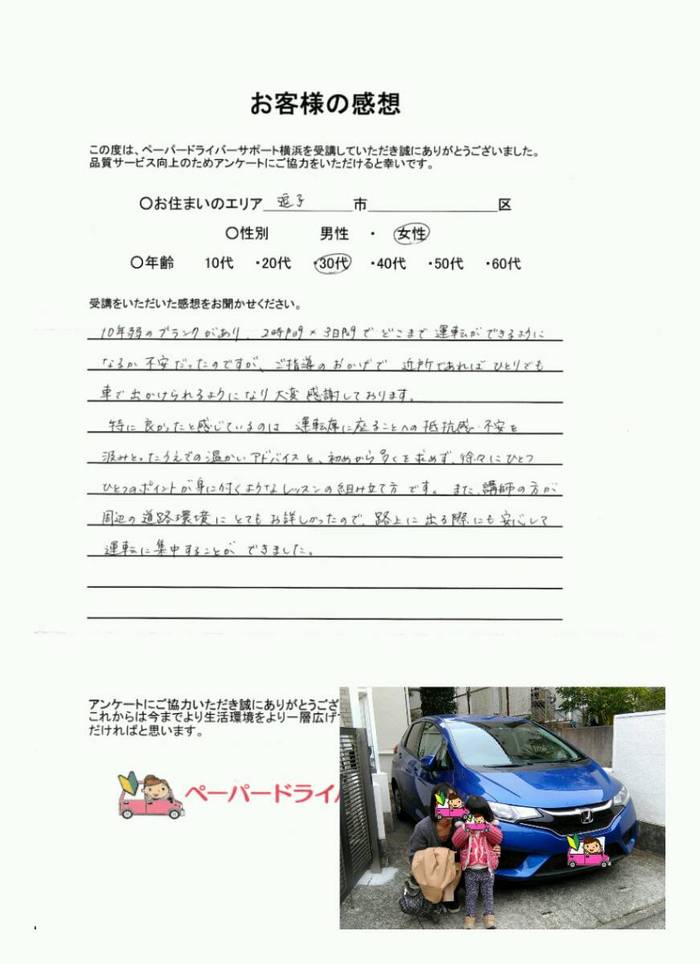 お客様の感想
この度は、ペーパードライバーサポート横浜を受講していただき誠にありがとうございました。
品質サービス向上のためアンケートにご協力をいただけると幸いです。
〇お住まいのエリア 逗子 市 区
〇性別 男性 ・ 女性
〇年齢 10代 ・20代 ・30代 ・40代 ・50代 ・60代
受講をいただいた感想をお聞かせください。
10年弱のブランクがあり、2時間×3日間でどこまで運転ができるように
なるか不安だったのですが、ご指導のおかげで 近所であればひとりでも
車で出かけられるようになり大変感謝しております。
特に良かったと感じているのは 運転席に座ることへの抵抗感・不安を
汲みとったうえでの温かいアドバイスと、初めから多くを求めず、徐々にひとつ
ひとつのポイントが身に付くようなレッスンの組み立て方です。また、講師の方が
周辺の道路環境にとてもお詳しかったので、路上に出る際にも安心して
運転に集中することができました。
アンケートにご協力いただき誠にありがとうござ
これからは今までより生活環境をより一層広げ
だければと思います。
ペーパードライ